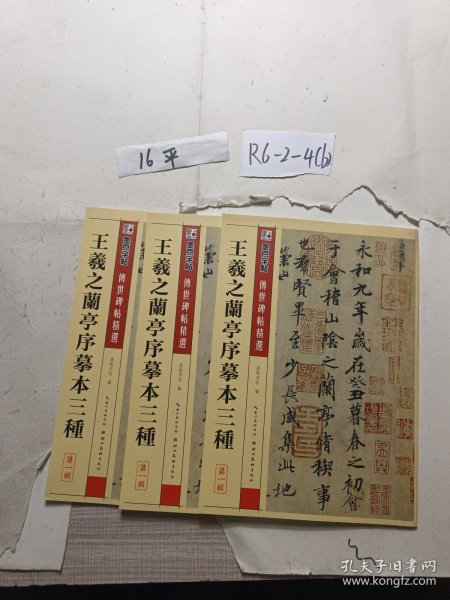 16平
R6-2-4(b)
墨点字帖
傳世碑帖精選
王羲之蘭亭序摹本三種
第一輯
墨点字帖
傳世碑帖精選
王羲之蘭亭序摹本三種
第一輯
墨点字帖
傳世碑帖精選
王羲之蘭亭序摹本三種
第一輯
永和九年歲在癸丑暮春之初會
于會稽山陰之蘭亭脩禊事
也群賢畢至少長咸集此地
崇山
孔夫子旧书网
www.kongfz.com